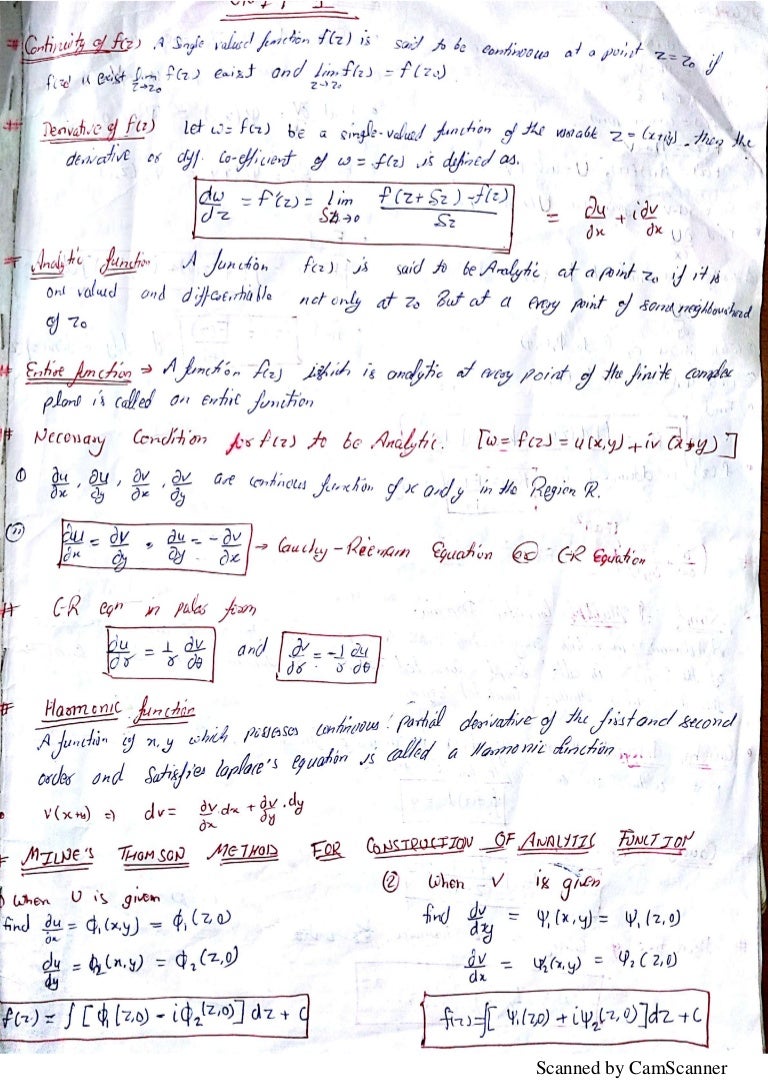 # Continuity of f(z) A Single valued function f(z) is said to be continuous at a point z=z₀ if
f(z₀) is exist lim z→z₀ f(z) exist and lim z→z₀ f(z) = f(z₀)
# Derivative of f(z) let w= f(z) be a single-valued function of the variable z = (x+iy). then the
derivative or diff. Co-efficient of w = f(z) is defined as.
dw/dz = f'(z) = lim δz→0 f(z+δz)-f(z)/δz = ∂u/∂x + i∂v/∂x
= Analytic function A function f(z) is said to be Analytic at a point z₀ if it is
one valued and differentiable not only at z₀ But at a every point of some neighbourhood
of z₀
# Entire function → A function f(z) which is analytic at every point of the finite complex
plane is called an entire function
# Necessary Condition for f(z) to be Analytic. [w= f(z) = u(x,y) + iv (x+y)]
① ∂u/∂x, ∂u/∂y, ∂v/∂x, ∂v/∂y are continous function of x and y in the Region R.
(ii) ∂u/∂x = ∂v/∂y, ∂u/∂y = -∂v/∂x → Cauchy-Reemann Equation or C-R Equation
# C-R eqn in polar form
∂u/∂r = 1/r ∂v/∂θ and ∂v/∂r = -1/r ∂u/∂θ
# Harmonic function
A function of x,y which possesses continuous partial derivative of the first and second
order and Satisfies Laplace's equation is called a Harmonic function
⇒ dv= ∂v/∂x dx + ∂v/∂y .dy
= MILNE'S THOMSON METHOD FOR CONSTRUCTION OF ANALYTIC FUNCTION
When U is given
find ∂u/∂x = ϕ₁(x,y) = ϕ₁(z,0)
du/dy = ϕ₂(x,y) = ϕ₂(z,0)
f(z) = ∫[ϕ₁(z,0) - iϕ₂(z,0)] dz + C
② When V is given
find = ψ₁(x,y) = ψ₁(z,0)
∂v/dx = ψ₂(x,y) = ψ₂(z,0)
f(z)=∫[ψ₁(z,0) + iψ₂(z,0)]dz + C
Scanned by CamScanner